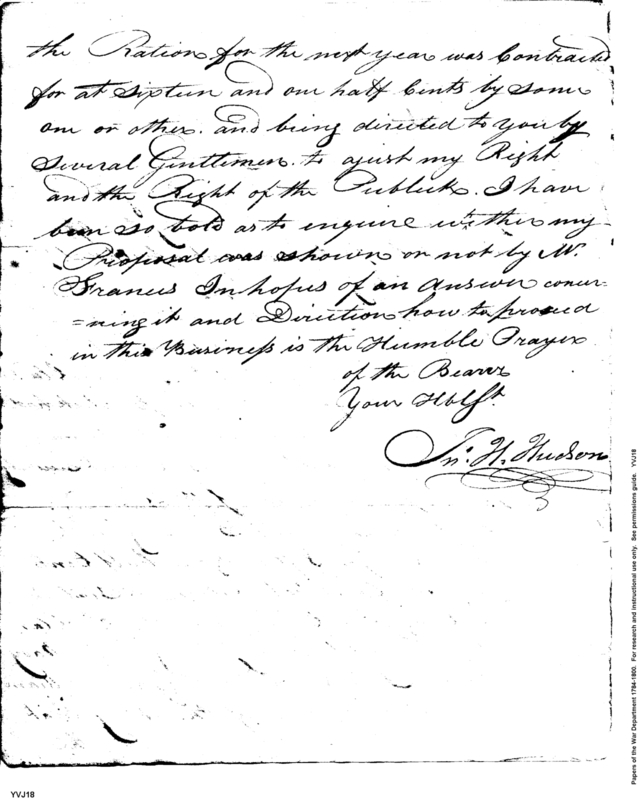 the Ration for the next year was Contracted
for at sixteen and one half Cents by some
one or other. and being directed to you by
several Gentlemen. to ajust my Right
and the Right of the Publick. I have
been so bold as to enquire wether my
Proposal was shown or not by Mr.
Francis In hopes of an Answer concer-
=ning it and Direction how to proceed
in this Business is the Humble Prayer
of the Bearer
Your Hbl St.
Jno. H. Hudson
Papers of the War Department 1784-1800. For research and instructional use only. See permissions guide. YVJ18
YVJ18